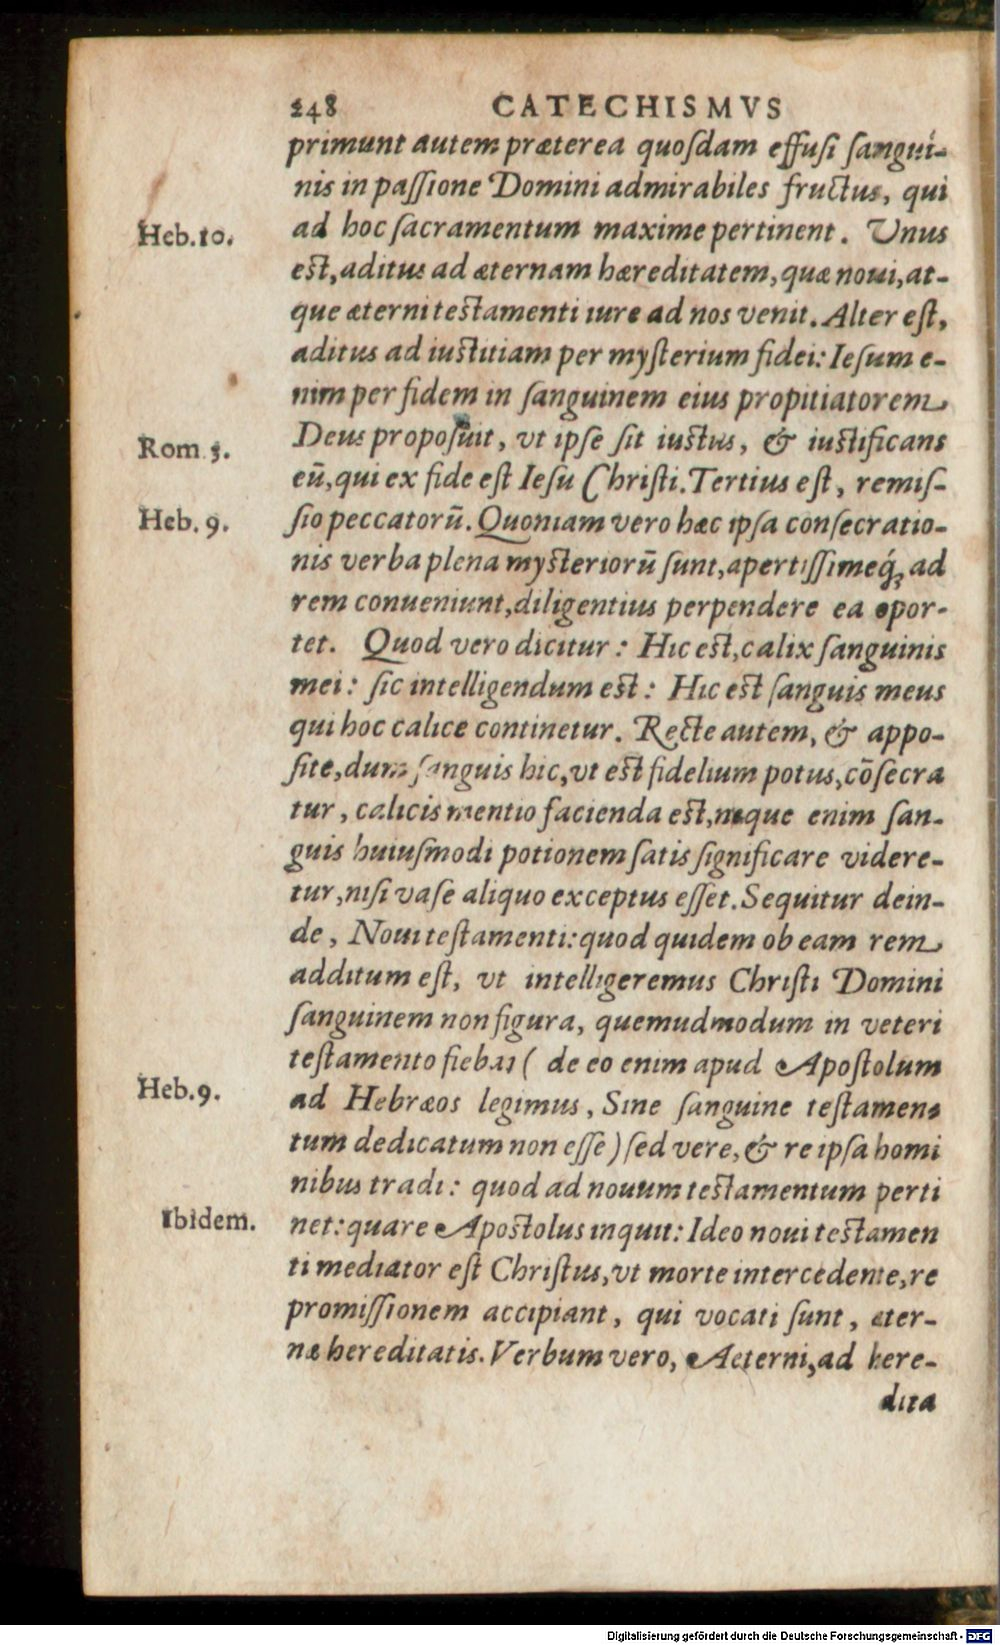 248 CATECHISMVS
primunt autem præterea quoſdam effuſi ſangui-
nis in paſſione Domini admirabiles fructus, qui
Heb.10. ad hoc ſacramentum maxime pertinent. Unus
eſt, aditus ad æternam hæreditatem, quæ noui, at-
que æterni teſtamenti iure ad nos venit. Alter eſt,
aditus ad iuſtitiam per myſterium fidei: Ieſum e-
nim per fidem in ſanguinem eius propitiatorem
Rom 3. Deus propoſuit, vt ipſe ſit iuſtus, & iuſtificans
eū, qui ex fide eſt Ieſu Chriſti. Tertius eſt, remiſ-
Heb. 9. ſio peccatorū. Quoniam vero hæc ipſa conſecratio-
nis verba plena myſteriorū ſunt, apertiſſimeq́; ad
rem conueniunt, diligentius perpendere ea opor-
tet. Quod vero dicitur: Hic eſt, calix ſanguinis
mei: ſic intelligendum eſt: Hic eſt ſanguis meus
qui hoc calice continetur. Recte autem, & appo-
ſite, dum ſanguis hic, vt eſt fidelium potus, cōſecra
tur, calicis mentio facienda eſt, neque enim ſan-
guis huiuſmodi potionem ſatis ſignificare videre-
tur, niſi vaſe aliquo exceptus eſſet. Sequitur dein-
de, Noui teſtamenti: quod quidem ob eam rem
additum eſt, vt intelligeremus Chriſti Domini
ſanguinem non figura, quemudmodum in veteri
teſtamento fiebat ( de eo enim apud Apoſtolum
Heb.9. ad Hebræos legimus, Sine ſanguine teſtamen-
tum dedicatum non eſſe ) ſed vere, & re ipſa homi
nibus tradi: quod ad nouum teſtamentum perti
Ibidem. net: quare Apoſtolus inquit: Ideo noui teſtamen
ti mediator eſt Chriſtus, vt morte intercedente, re
promiſſionem accipiant, qui vocati ſunt, æter-
næ hereditatis. Verbum vero, Aeterni, ad here-
dita
Digitalisierung gefördert durch die Deutsche Forschungsgemeinschaft - DFG